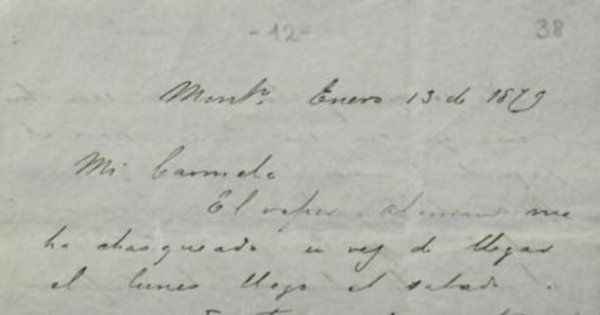 -12-
38
Montº Enero 13 de 1879
Mi Carmelo
El vapor aleman me
ha chasqueado en vez de llegar
el lunes llego el sabado.